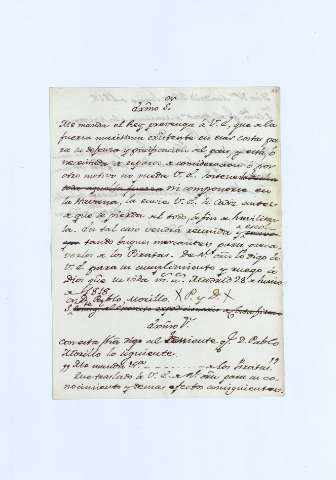 Exmo Sor
Me manda el Rey prevenga á V. E. que si la
fuerza maritima existente en esas costas pa
ra su defensa y pacificacion del pais y esta
necesitada de reparos de consideracion ó por
otro motivo no pueda V. E. sostenerla
toda aquella fuerza ni componerse en
la Havana, la envie V. E. á Cadiz antes
que se pierda del todo, á fin de havilitar
la. En tal caso vendrá reunida y escol
tando buques mercantes para preser
varlos de los Piratas. De Rl. orn lo digo á
V. E. para su cumplimiento y ruego á
Dios que su vida ms. as. Madrid 28 de Junio
de 1818.
Sr. D. Pablo Morillo. X P. y D. X
Exmo Sr.
Con esta fha digo al Teniente Gl. D. Pablo
Morillo lo siguiente.
"Me manda &a - - - - - - - - á los Piratas."
Lo traslado á V. E. de Rl. orn para su co
nocimiento y demas efectos consiguientes.